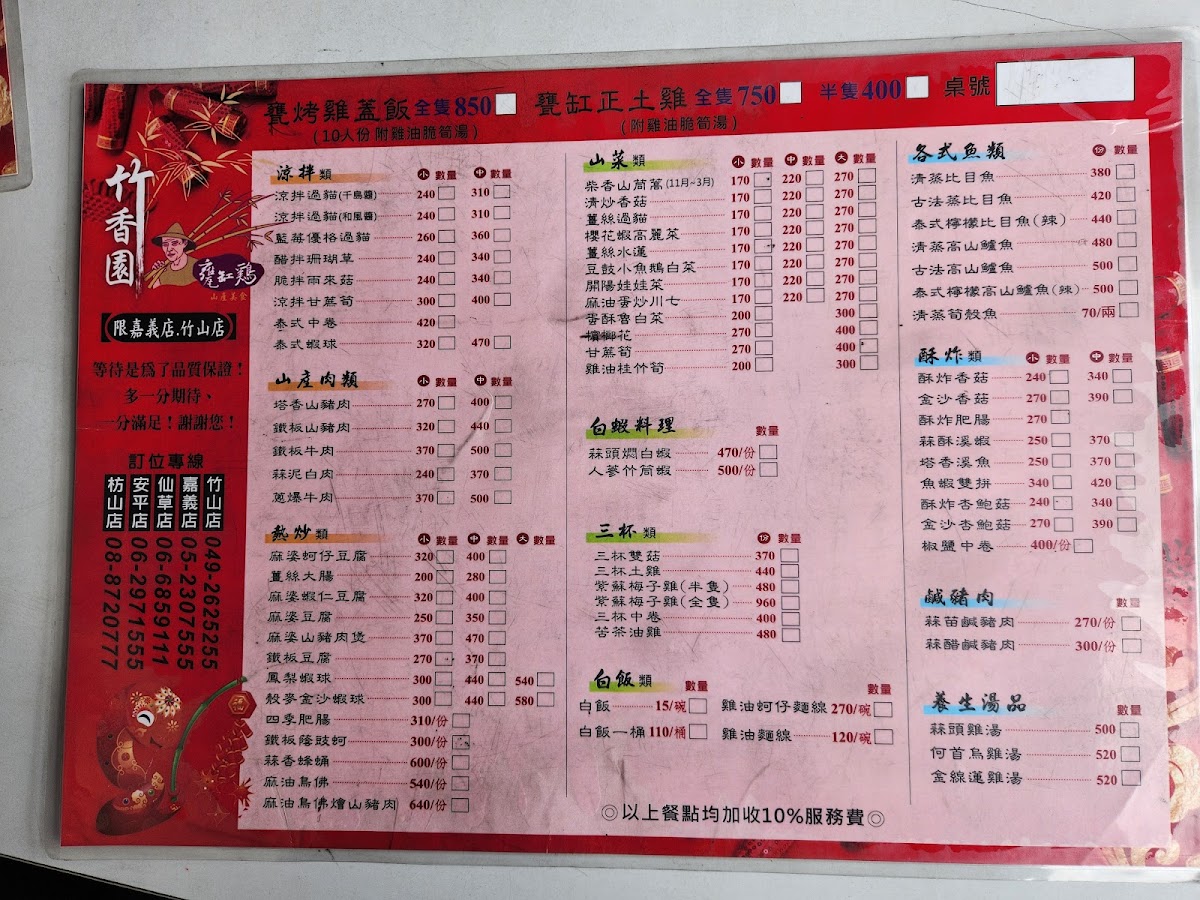 甕烤雞蓋飯 全隻850 甕缸正土雞 全隻750 半隻400 桌號
(10人份 附雞油脆筍湯) (附雞油脆筍湯)
竹香園
甕缸鷄
山產美食
限嘉義店.竹山店
等待是為了品質保證!
多一分期待、
一分滿足!謝謝您!
訂位專線
竹山店 049-2625255
嘉義店 05-2307555
仙草店 06-6859111
安平店 06-2971555
枋山店 08-8720777
涼拌類 小 數量 中 數量
涼拌過貓(千島醬) 240 310
涼拌過貓(和風醬) 240 310
藍莓優格過貓 260 360
醋拌珊瑚草 240 340
脆拌雨來菇 240 340
涼拌甘蔗筍 300 400
泰式中卷 420
泰式蝦球 320 470
山產肉類 小 數量 中 數量
塔香山豬肉 270 400
鐵板山豬肉 320 440
鐵板牛肉 370 500
蒜泥白肉 240 370
蔥爆牛肉 370 500
熱炒類 小 數量 中 數量 大 數量
麻婆蚵仔豆腐 320 400
薑絲大腸 200 280
麻婆蝦仁豆腐 320 400
麻婆豆腐 250 350
麻婆山豬肉煲 370 470
鐵板豆腐 270 370
鳳梨蝦球 300 440 540
穀麥金沙蝦球 300 440 580
四季肥腸 310/份
鐵板蔭豉蚵 300/份
蒜香蜂蛹 600/份
麻油鳥佛 540/份
麻油鳥佛燴山豬肉 640/份
山菜類 小 數量 中 數量 大 數量
柴香山茼蒿(11月~3月) 170 220 270
清炒香菇 170 220 270
薑絲過貓 170 220 270
櫻花蝦高麗菜 170 220 270
薑絲水蓮 170 220 270
豆鼓小魚鵝白菜 170 220 270
開陽娃娃菜 170 220 270
麻油蛋炒川七 170 220 270
蛋酥魯白菜 200 300
檳榔花 300 400
甘蔗筍 270 400
雞油桂竹筍 200 300
白蝦料理 數量
蒜頭燜白蝦 470/份
人蔘竹筒蝦 500/份
三杯類 份 數量
三杯雙菇 370
三杯土雞 440
紫蘇梅子雞(半隻) 480
紫蘇梅子雞(全隻) 960
三杯中卷 400
苦茶油雞 480
白飯類 數量 數量
白飯 15/碗 雞油蚵仔麵線 270/碗
白飯一桶 110/桶 雞油麵線 120/碗
◎以上餐點均加收10%服務費◎
各式魚類 份 數量
清蒸比目魚 380
古法蒸比目魚 420
泰式檸檬比目魚(辣) 440
清蒸高山鱸魚 480
古法高山鱸魚 500
泰式檸檬高山鱸魚(辣) 500
清蒸筍殼魚 70/兩
酥炸類 小 數量 中 數量
酥炸香菇 240 340
金沙香菇 270 390
酥炸肥腸 270
蒜酥溪蝦 250 370
塔香溪魚 250 370
魚蝦雙拼 340 420
酥炸杏鮑菇 240 340
金沙杏鮑菇 270 390
椒鹽中卷 400/份
鹹豬肉 數量
蒜苗鹹豬肉 270/份
蒜醋鹹豬肉 300/份
養生湯品 數量
蒜頭雞湯 500
何首烏雞湯 520
金線蓮雞湯 520